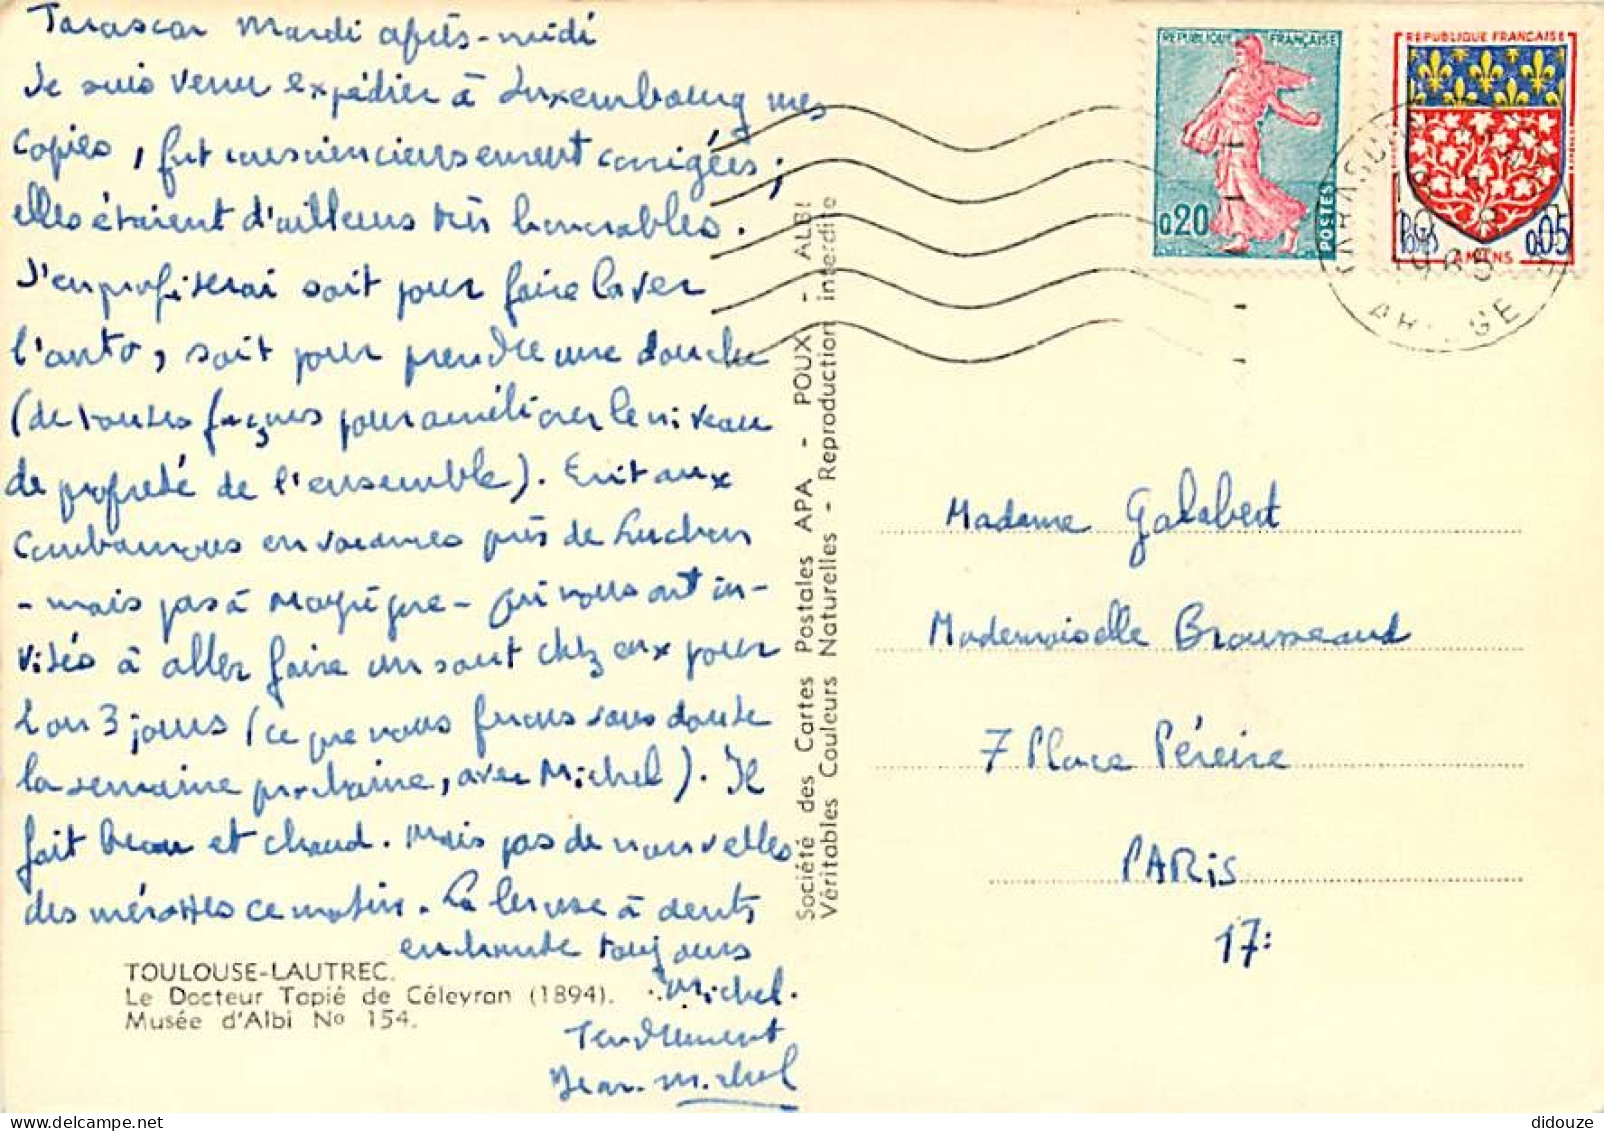 Tarascon Mardi après-midi
Je suis venu expédier à Luxembourg mes
copies, fut consciencieusement corrigées;
elles étaient d'ailleurs très honorables.
J'en profiterai soit pour faire laver
l'auto, soit pour prendre une douche
(de toutes façons pour améliorer le niveau
de propreté de l'ensemble). Ecrit aux
Cambamous en vacances près de Luchon
- mais pas à - qui nous ont in-
vités à aller faire un saut chez eux pour
2 ou 3 jours (ce que nous ferons sans doute
la semaine prochaine, avec Michel). Il
fait beau et chaud. Mais pas de nouvelles
des ce matin. La à dents
enchante toujours
Michel.
Tendrement
Jean-Michel
TOULOUSE-LAUTREC.
Le Docteur Tapié de Céleyran (1894).
Musée d'Albi No 154.
Société des Cartes Postales APA - POUX - ALBI
Véritables Couleurs Naturelles - Reproduction interdite
REPUBLIQUE FRANÇAISE
0,20
POSTES
REPUBLIQUE FRANÇAISE
POSTES
0,05
AMIENS
1965
ARIEGE
Madame Galabert
Mademoiselle Brousseaud
7 Place Péreire
PARIS
17:
didouze